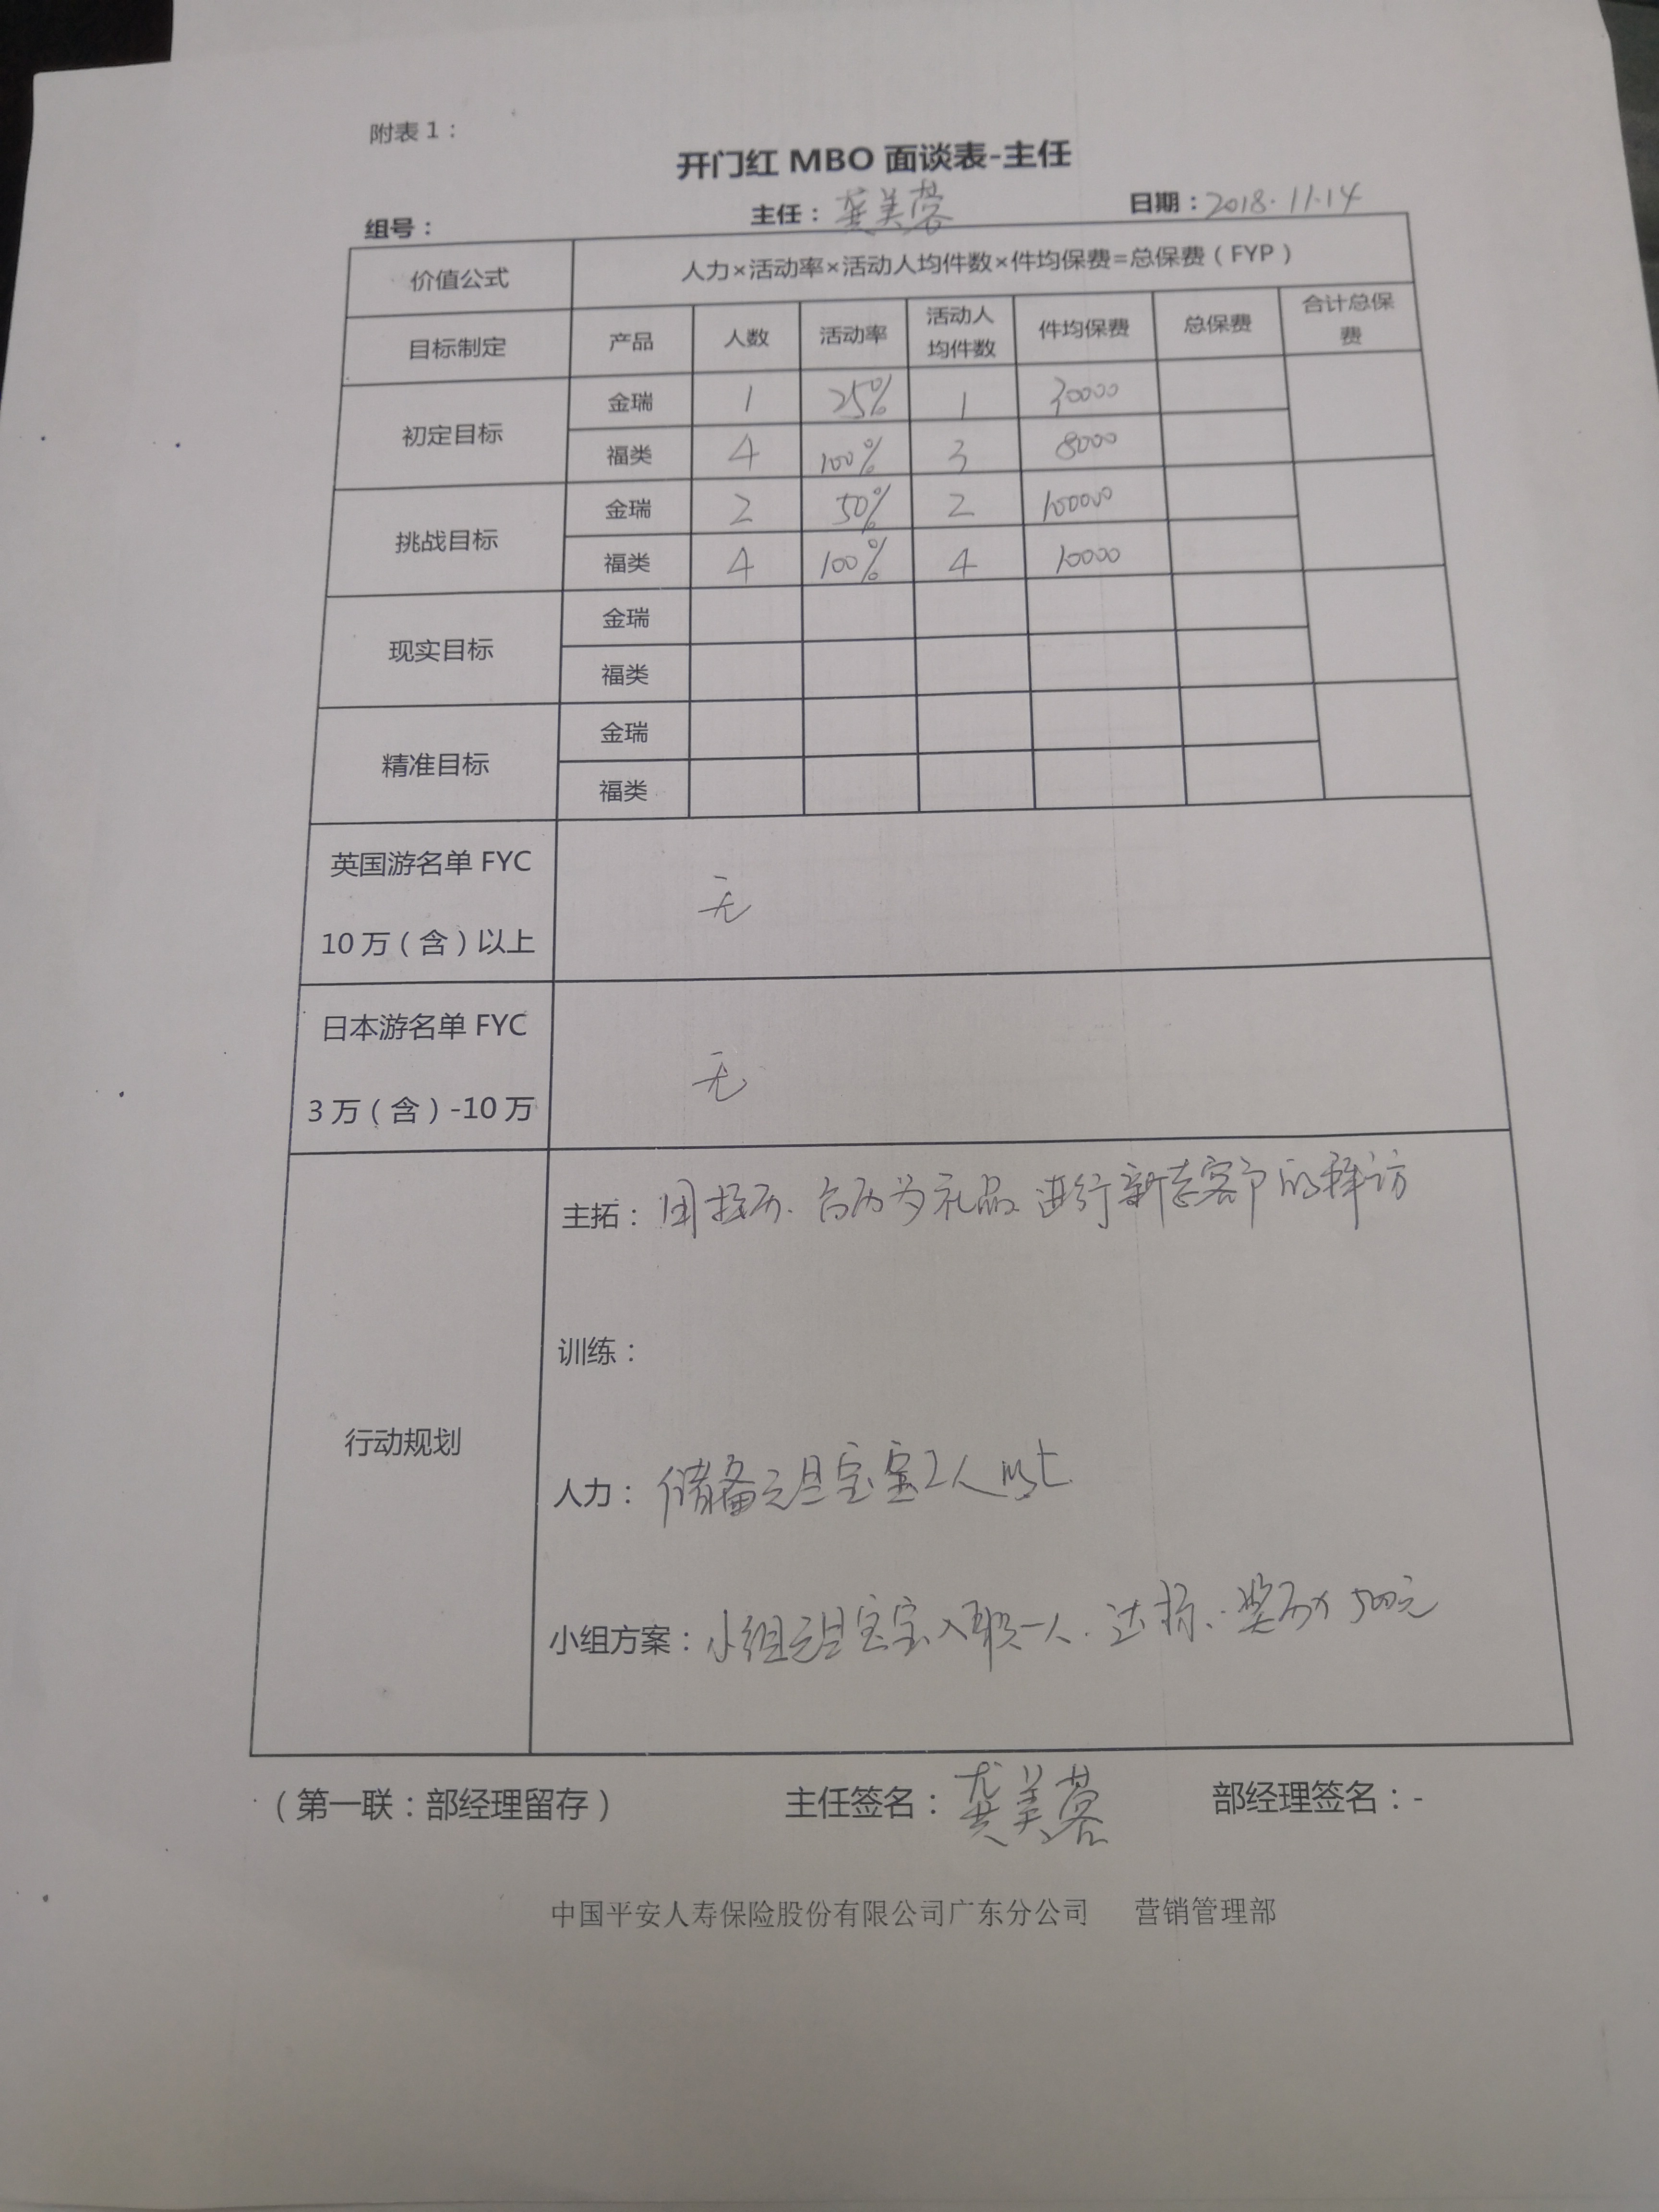 附表1：
开门红 MBO 面谈表-主任
组号： 主任：龚美蓉 日期：2018.11.14
价值公式 人力×活动率×活动人均件数×件均保费=总保费（FYP）
目标制定 产品 人数 活动率 活动人均件数 件均保费 总保费 合计总保费
初定目标 金瑞 1 25% 1 30000
福类 4 100% 3 8000
挑战目标 金瑞 2 50% 2 100000
福类 4 100% 4 10000
现实目标 金瑞
福类
精准目标 金瑞
福类
英国游名单 FYC
10万（含）以上
无
日本游名单 FYC
3万（含）-10万
无
行动规划
主拓： 台历为礼品 进行新老客户的拜访
训练：
人力：储备元旦宝宝2人以上
小组方案：小组元旦宝宝入职一人.达标.奖励 500元
（第一联：部经理留存） 主任签名：龚美蓉 部经理签名：-
中国平安人寿保险股份有限公司广东分公司 营销管理部